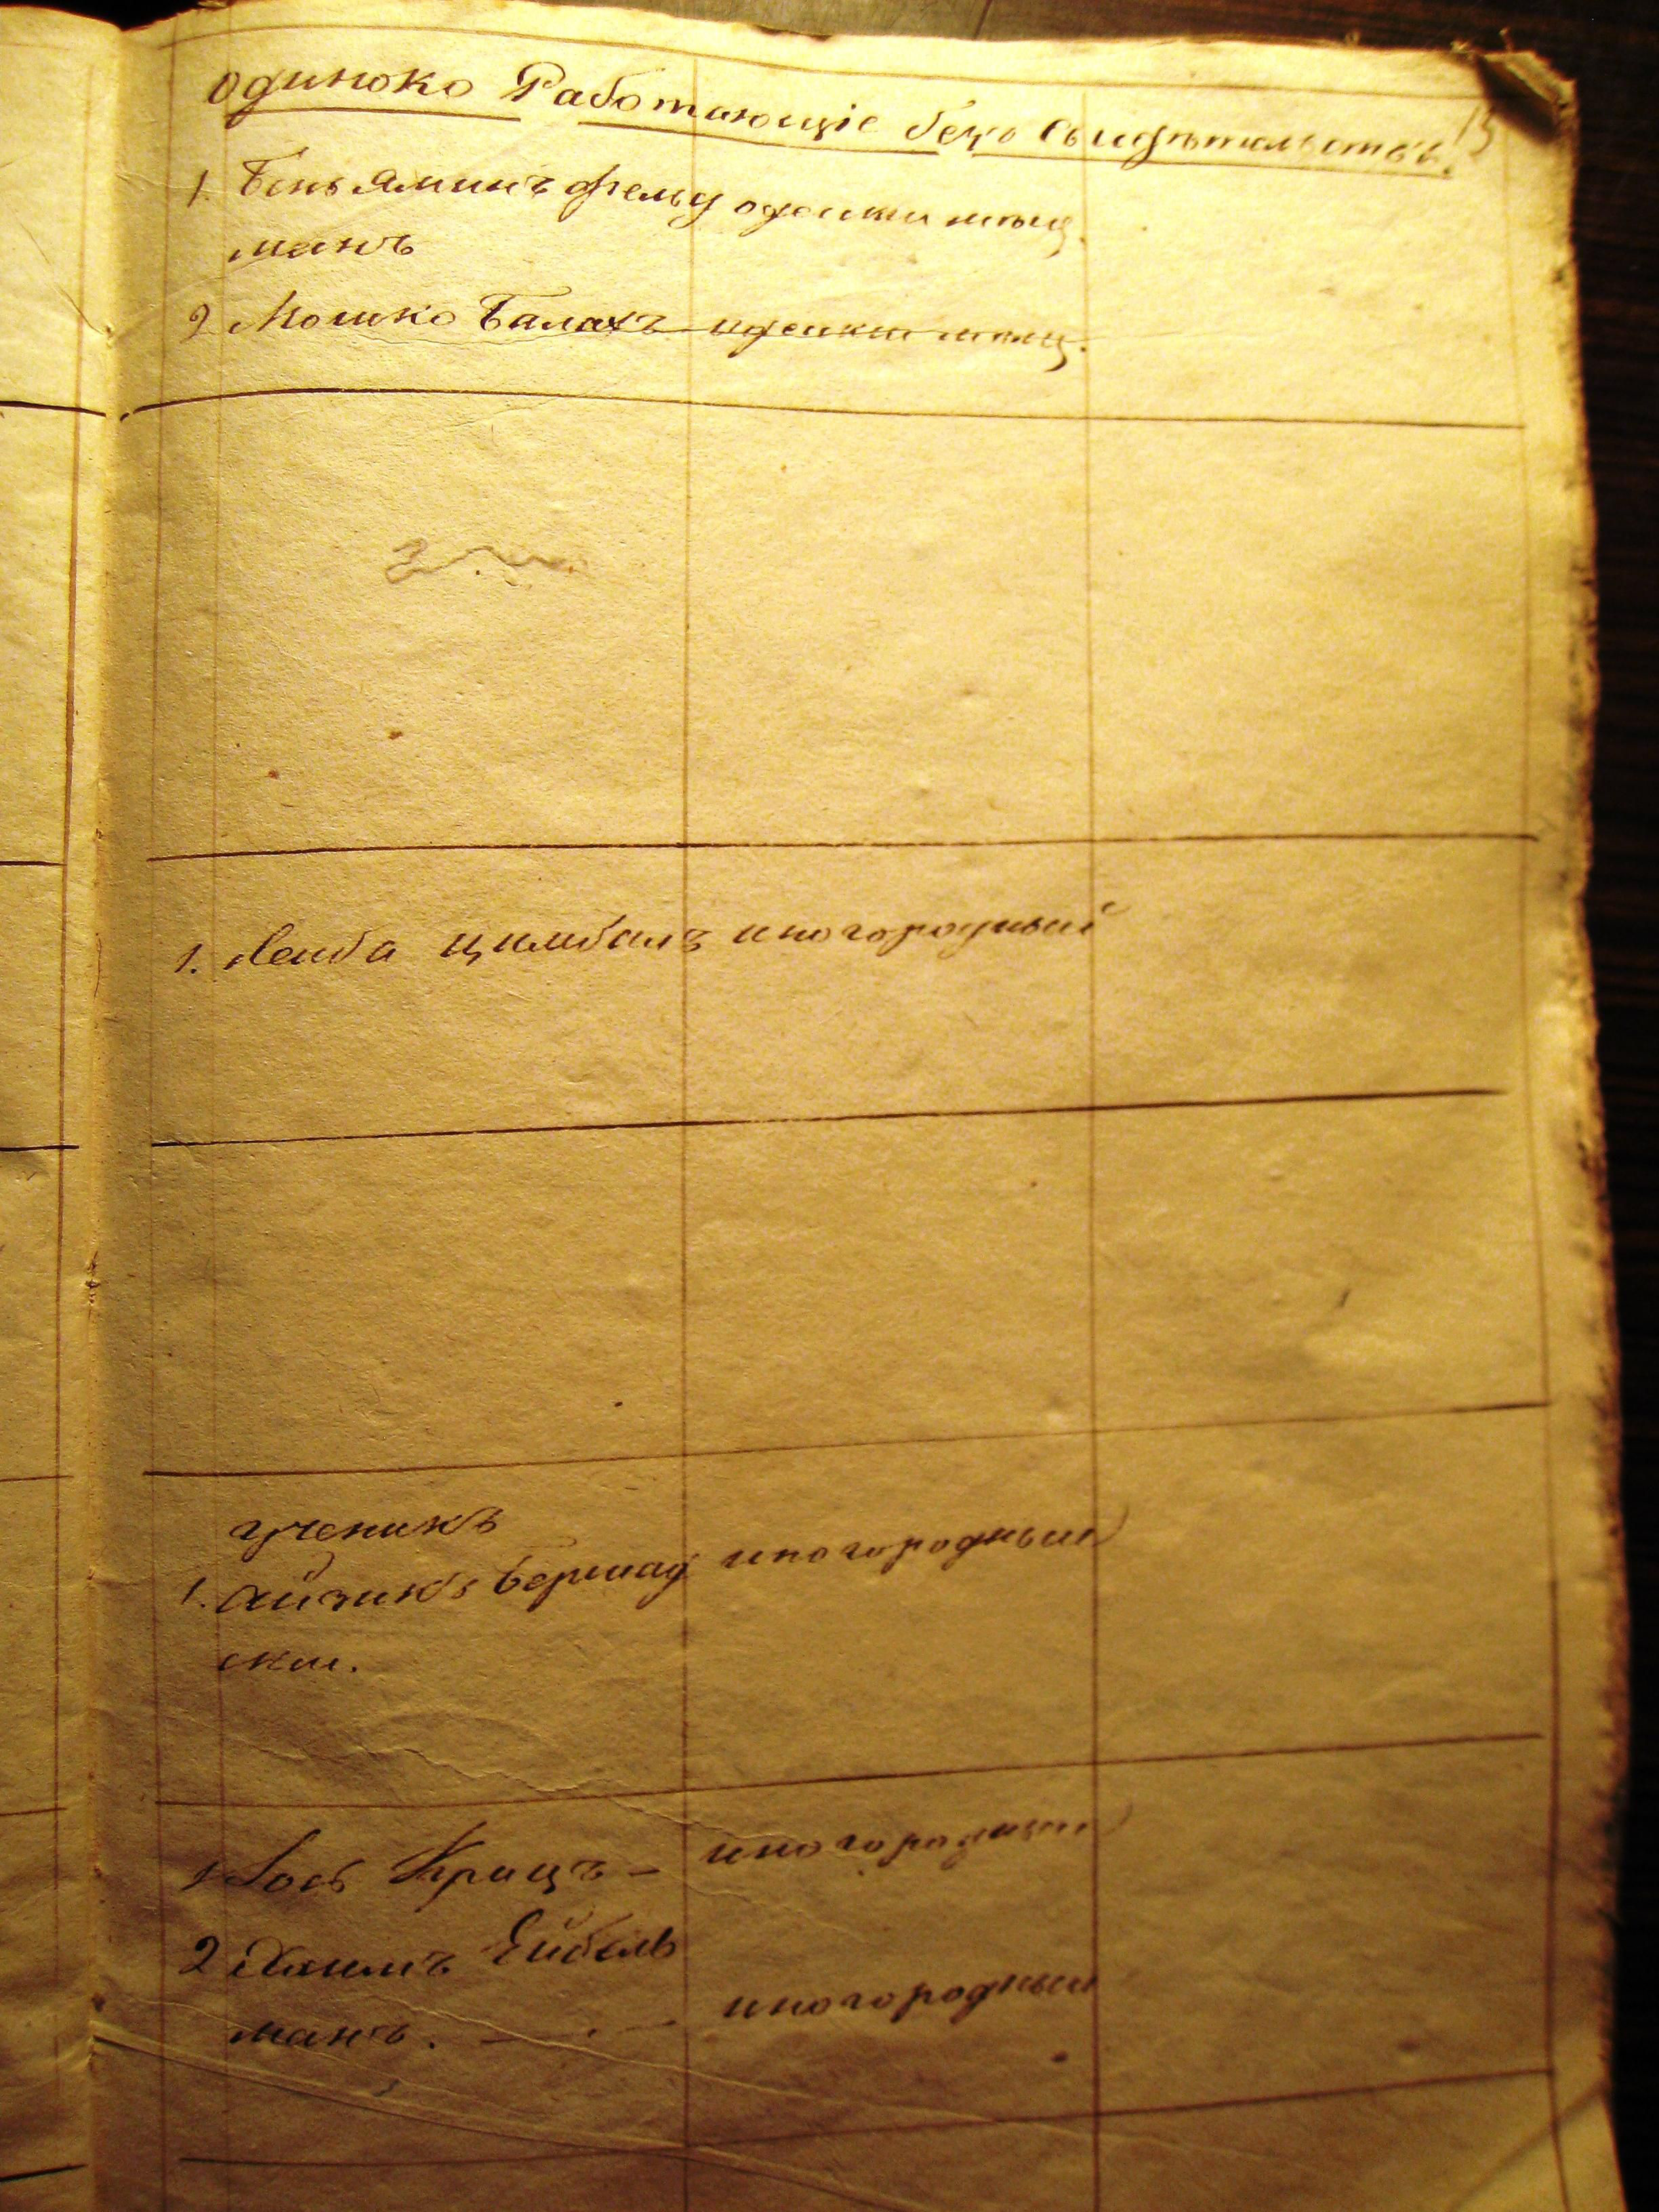 одиноко Работающіе безъ Свидѣтельствъ. 13
1. Беньяминъ Фельд одесскій мѣщ.
манъ
2 Мошко Балахъ одесскій мѣщ.
1. Лейба Цимбалъ иногородный
ученикъ
1. Айзикъ Бершад иногородный
скій.
1 Іось Крицъ – иногородный
2 Хаимъ Ейбель
манъ. — . — иногородный